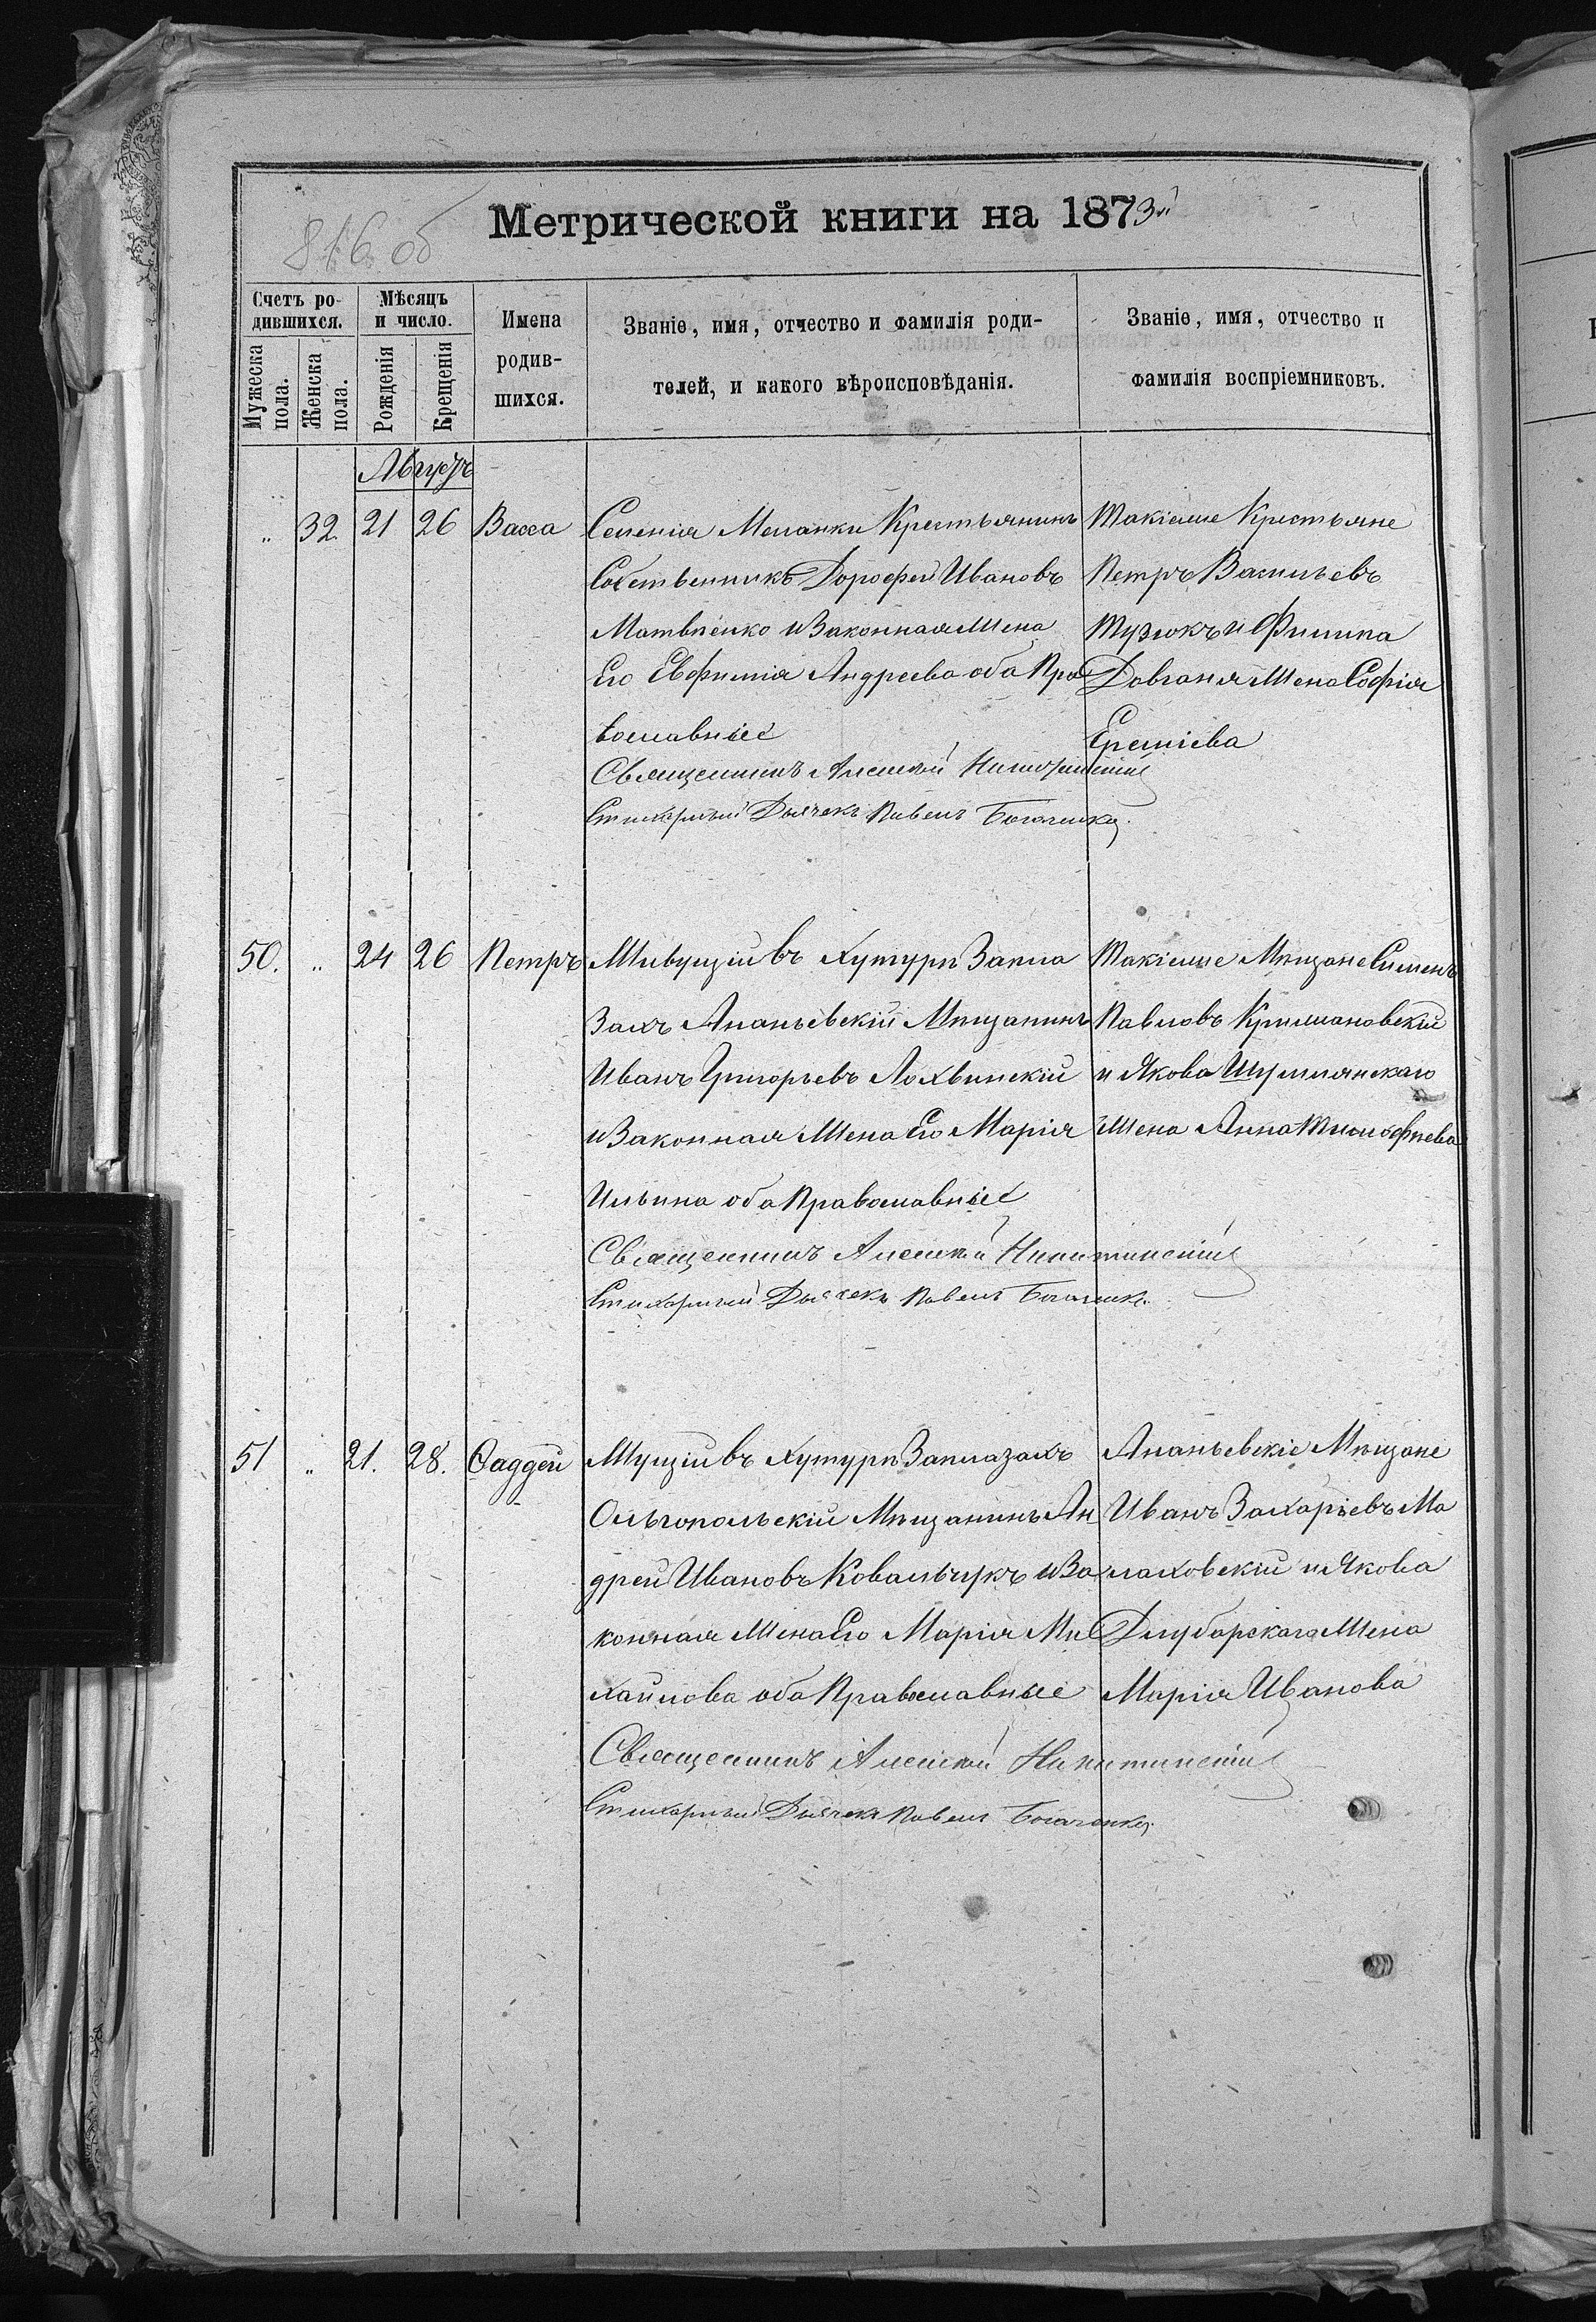 816 об
Метрической книги на 1873й
Счетъ ро-
дившихся.
Мужеска пола.
Женска пола.
Мѣсяцъ
и число.
Рожденія
Крещенія
Имена
родив-
шихся.
Званіе, имя, отчество и фамилія роди-
телей, и какого вѣроисповѣданія.
Званіе, имя, отчество и
фамилія воспріемниковъ.
Августъ
„ 32. 21 26 Васса
Селенія Меланки Крестьянинъ
Собственникъ Дорофей Ивановъ
Матвѣенко и Законная Жена
Его Евфимія Андреева оба Пра
вославные
Священникъ Алексій
Стихарный Дьячекъ Павелъ Богаченко.
Такіеже Крестьяне
Петръ Васильевъ
Тузюкъ и Филипа
Довганя Жена Софія
Ереміева
50. „ 24 26 Петръ
Живущій въ Хуторѣ Запла
захъ Ананьевскій Мѣщанинъ
Иванъ Григорьевъ Лохвинскій
и Законная Жена Его Марія
Ильина оба Православные
Священникъ Алексій Никитинскій
Стихарный Дьячекъ Павелъ Богаченко.
Такіеже Мѣщане Сименъ
Павловъ Крижановскій
и Якова Шумлянскаго
Жена Анна Тимофѣева
51 „ 21. 28. Ѳаддей
Жущій въ Хуторѣ Заплазахъ
Ольгопольскій Мѣщанинъ Ан
дрей Ивановъ Ковальчукъ и За
конная Жена Его Марія Ми
хайлова оба Православные
Священникъ Алексій Никитинскій
Стихарный Дьячекъ Павелъ Богаченко.
Ананьевскіе Мѣщане
Иванъ Захаріевъ Ма
лаховскій и Якова
Длубарскаго Жена
Марія Иванова